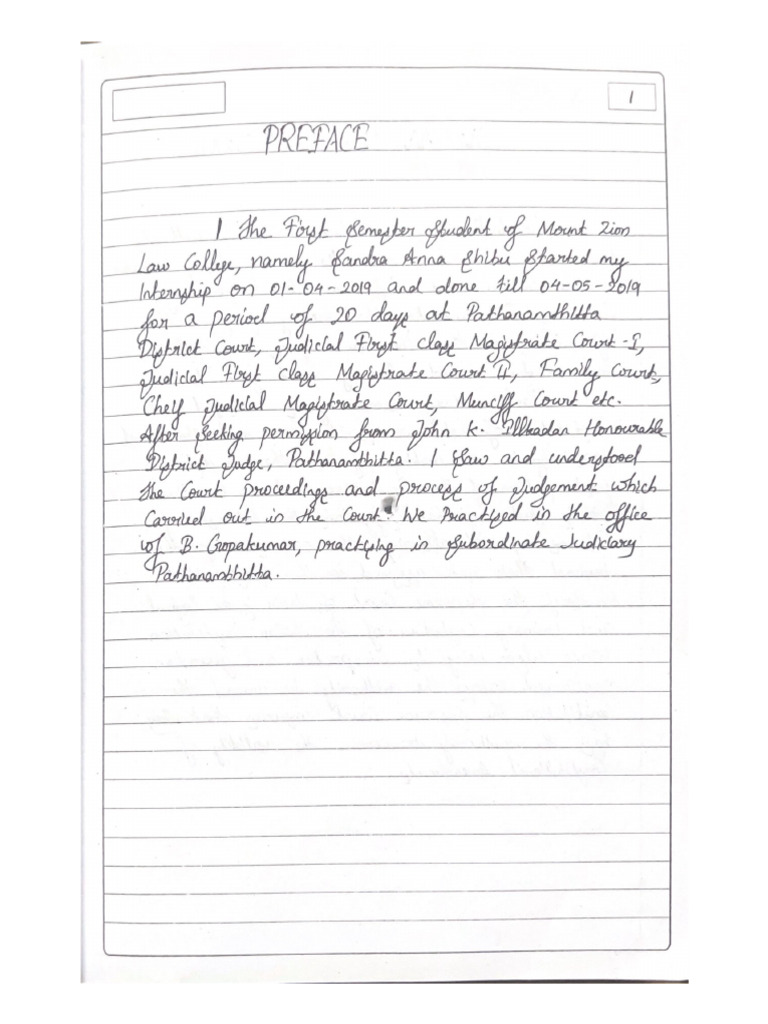 1
PREFACE
I The First Semester Student of Mount Zion
Law College, namely Sandra Anna Shibu Started my
Internship on 01-04-2019 and done till 04-05-2019
for a period of 20 days at Pathanamthitta
District Court, Judicial First class Magistrate Court-I,
Judicial First class Magistrate Court II, Family Court,
Cheif Judicial Magistrate Court, Munciff Court etc.
After Seeking permission from John K. Illikadan Honourable
District Judge, Pathanamthitta. I Saw and understood
the Court proceedings and process of Judgement which
Carried out in the Court. We Practised in the office
of B. Gopakumar, practising in Subordinate Judiciary
Pathanamthitta.